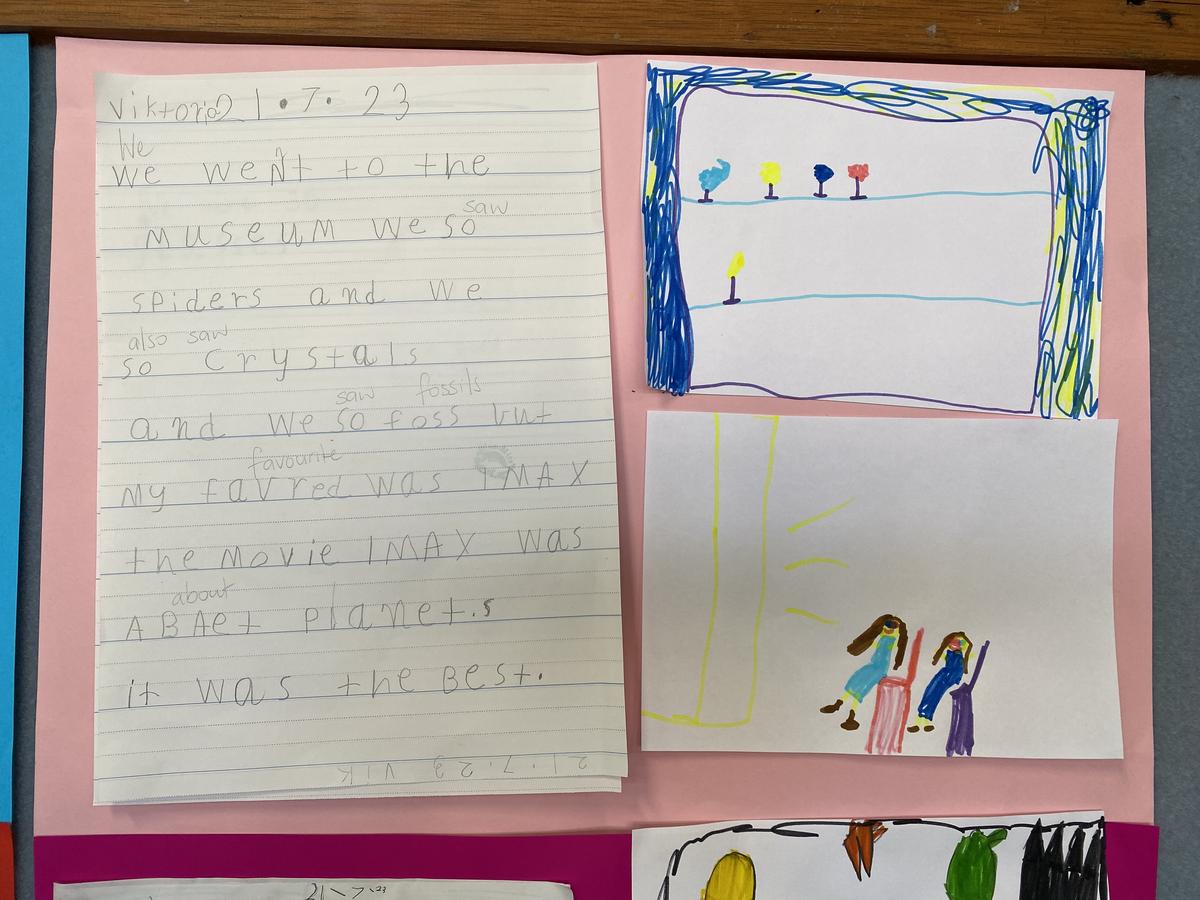 Viktoria 21.7.23
We
We went to the
saw
museum we so
spiders and we
also saw
so crystals
saw fossils
and we so foss but
favourite
my favred was IMAX
the movie IMAX was
about
ABAet planet.s
it was the Best.
21.7.23 Vik
21.7.23